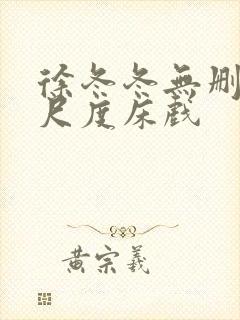 徐冬冬無刪
尺度床戲
黃宗羲